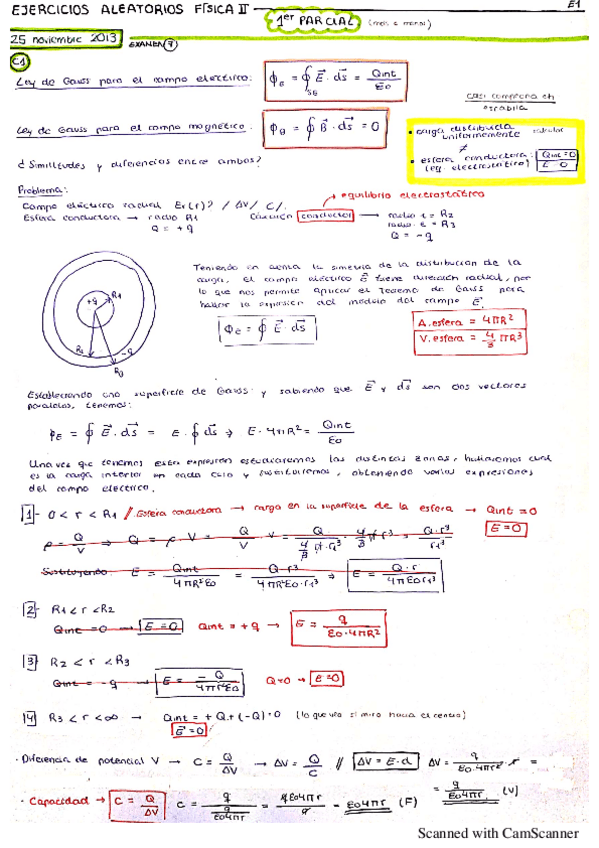 EJERCICIOS ALEATORIOS FÍSICA II
1er PARCIAL (más o menos)
E1
25 noviembre 2013
EXAMEN
C1
Ley de Gauss para el campo eléctrico: Φe = ∮ E⃗ · ds⃗ = Qint / Eo
Ley de Gauss para el campo magnético: ΦB = ∮ B⃗ · ds⃗ = 0
• carga distribuida uniformemente calcular
≠
• esfera conductora: Qint=0
(eq. electrostático) E=0
¿Similitudes y diferencias entre ambos?
Problema:
Campo eléctrico radial Er(r)? / ΔV / C /.
→ equilibrio electrostático
Esfera conductora → radio R1
Q = +q
conductor → radio i = R2
radio e = R3
Q = -q
+q R1
-q
R3
Teniendo en cuenta la simetría de la distribución de la
carga, el campo eléctrico E⃗ tiene dirección radial, por
lo que nos permite aplicar el Teorema de Gauss para
hallar la expresión del módulo del campo E⃗.
Φe = ∮ E⃗ · ds⃗
A. esfera = 4πR²
V. esfera = 4/3 πR³
Estableciendo una superficie de Gauss y sabiendo que E⃗ y ds⃗ son dos vectores
paralelos, tenemos:
ΦE = ∮ E⃗ · ds⃗ = E · ∮ ds⃗ → E · 4πR² = Qint / Eo
Una vez que tenemos esta expresión estudiaremos las distintas zonas, hallaremos cual
es la carga interior en cada caso y sustituiremos, obteniendo varias expresiones
del campo eléctrico.
1 - 0 < r < R1 // Esfera conductora → carga en la superficie de la esfera → Qint = 0
E=0
ρ = Q/V ⇒ Q = ρ · V = Q/V · V = Q / (4/3 π r³) · 4/3 π r³ = Q · r³ / r1³
Sustituyendo: E = Qint / 4πR²Eo = Q · r³ / 4πR²Eo · r1³ → E = Q · r / 4πEo r1³
2 - R1 < r < R2
Qint = 0 → E=0 Qint = +q → E = q / Eo·4πR²
3 - R2 < r < R3
Qint = -q → E = -Q / 4πr²Eo Q=0 → E=0
4 - R3 < r < ∞ → Qint = +Q + (-Q) = 0 (lo que veo si miro hacia el centro)
E⃗ = 0
· Diferencia de potencial V → C = Q/ΔV → ΔV = Q/C // ΔV = E·d ΔV = q / Eo·4πr² · r =
= q / Eo4πr (V)
· Capacidad → C = Q/ΔV C = q / (q / Eo4πr) = qEo4πr / q = Eo4πr (F)
Scanned with CamScanner